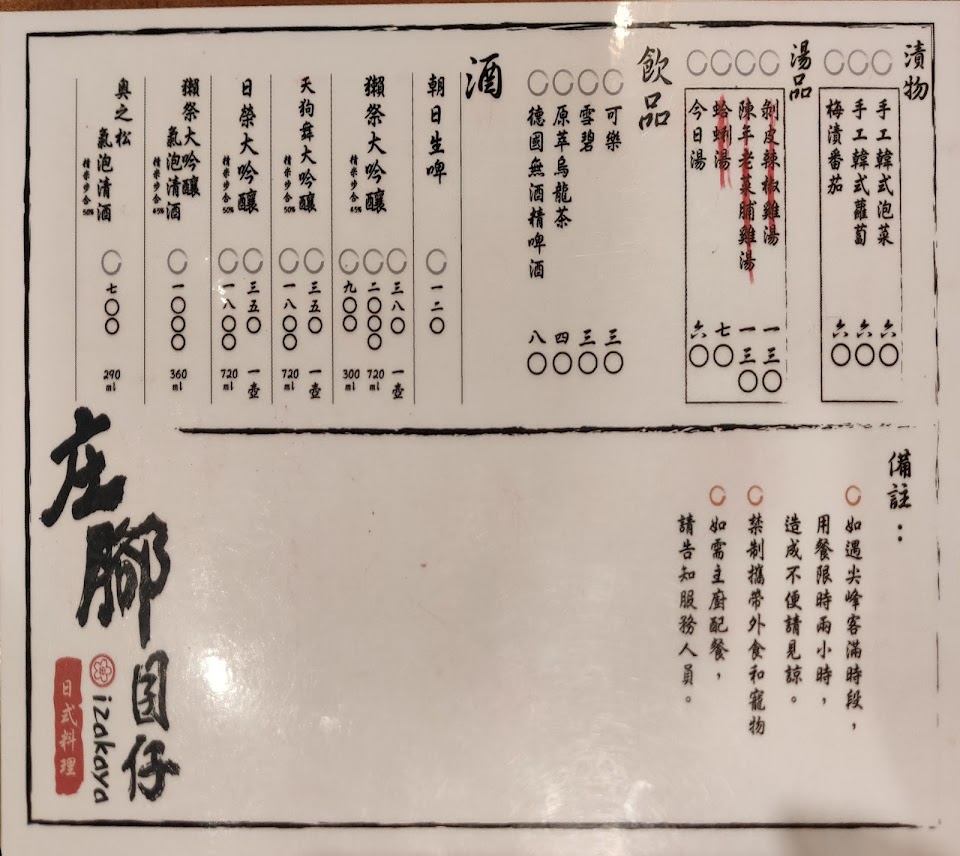 漬物
手工韓式泡菜 六〇
手工韓式蘿蔔 六〇
梅漬番茄 六〇
湯品
剝皮辣椒雞湯 一三〇
陳年老菜脯雞湯 一三〇
蛤蜊湯 七〇
今日湯 六〇
飲品
可樂 三〇
雪碧 三〇
原萃烏龍茶 四〇
德國無酒精啤酒 八〇
酒
朝日生啤 一二〇
獺祭大吟釀 精米步合45%
三八〇 一壺
二〇〇〇 720ml
九〇〇 300ml
天狗舞大吟釀 精米步合50%
三五〇 一壺
一八〇〇 720ml
日榮大吟釀 精米步合50%
三五〇 一壺
一八〇〇 720ml
獺祭大吟釀氣泡清酒 精米步合45%
一〇〇〇 360ml
奧之松氣泡清酒 精米步合50%
七〇〇 290ml
備註：
如遇尖峰客滿時段，
用餐限時兩小時，
造成不便請見諒。
禁制攜帶外食和寵物
如需主廚配餐，
請告知服務人員。
庄腳囝仔
izakaya
日式料理